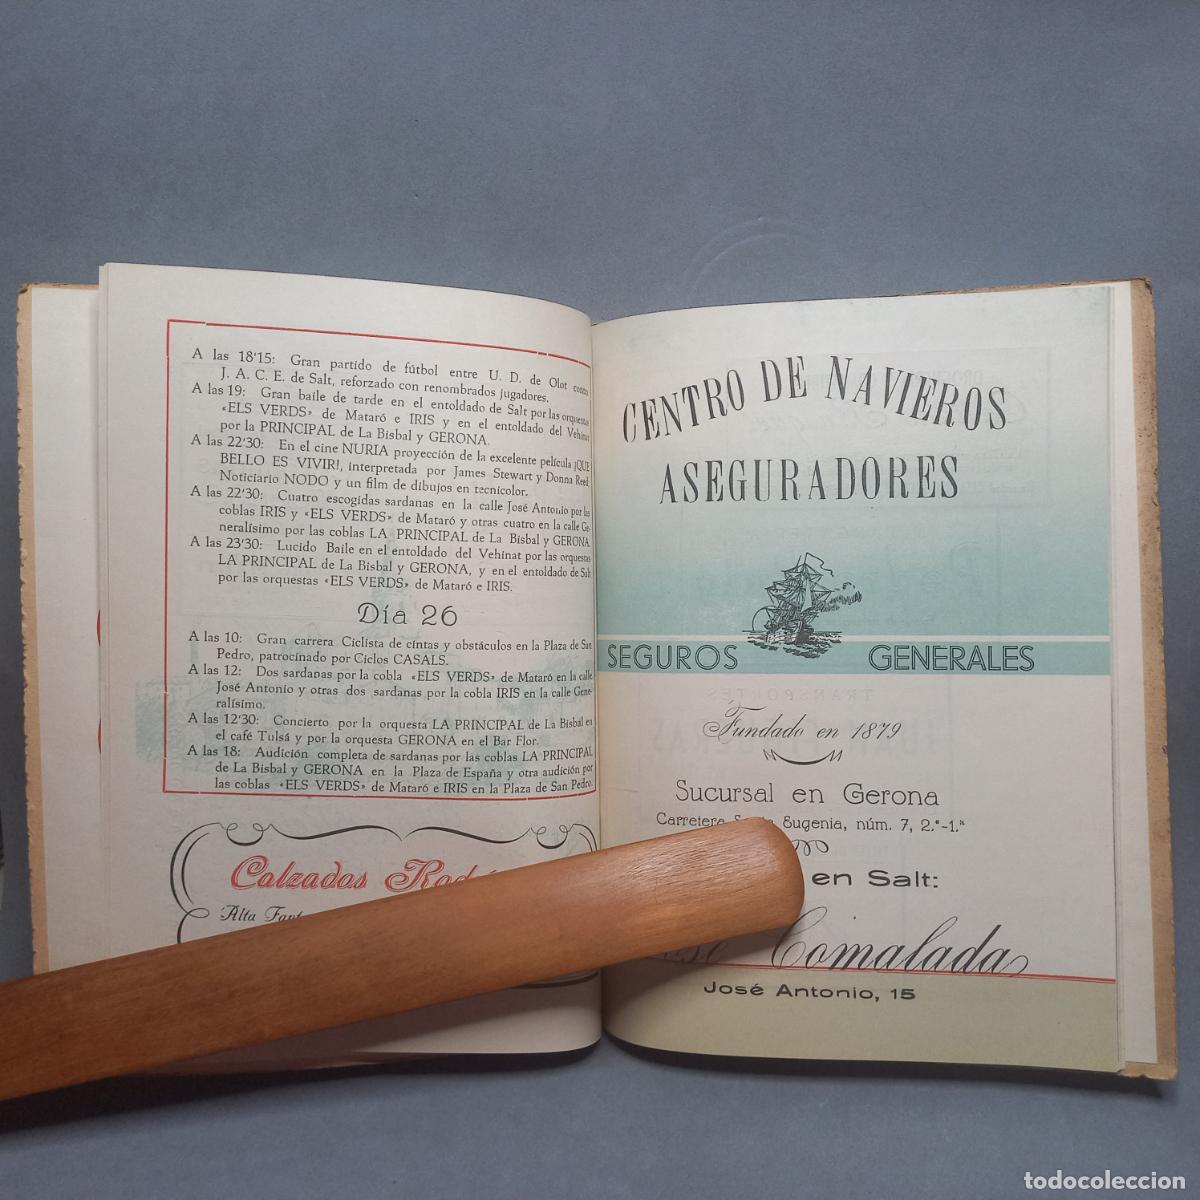 A las 18'15: Gran partido de fútbol entre U. D. de Olot contra
J. A. C. E. de Salt, reforzado con renombrados jugadores.
A las 19: Gran baile de tarde en el entoldado de Salt por las orquestas
«ELS VERDS» de Mataró e IRIS y en el entoldado del Vehinat
por la PRINCIPAL de La Bisbal y GERONA.
A las 22'30: En el cine NURIA proyección de la excelente película ¡QUE
BELLO ES VIVIR!, interpretada por James Stewart y Donna Reed.
Noticiario NODO y un film de dibujos en tecnicolor.
A las 22'30: Cuatro escogidas sardanas en la calle José Antonio por las
coblas IRIS y «ELS VERDS» de Mataró y otras cuatro en la calle Ge-
neralísimo por las coblas LA PRINCIPAL de La Bisbal y GERONA.
A las 23'30: Lucido Baile en el entoldado del Vehinat por las orquestas
LA PRINCIPAL de La Bisbal y GERONA, y en el entoldado de Salt
por las orquestas «ELS VERDS» de Mataró e IRIS.
Día 26
A las 10: Gran carrera Ciclista de cintas y obstáculos en la Plaza de San
Pedro, patrocinado por Ciclos CASALS.
A las 12: Dos sardanas por la cobla «ELS VERDS» de Mataró en la calle
José Antonio y otras dos sardanas por la cobla IRIS en la calle Gene-
ralísimo.
A las 12'30: Concierto por la orquesta LA PRINCIPAL de La Bisbal en
el café Tulsá y por la orquesta GERONA en el Bar Flor.
A las 18: Audición completa de sardanas por las coblas LA PRINCIPAL
de La Bisbal y GERONA en la Plaza de España y otra audición por
las coblas «ELS VERDS» de Mataró e IRIS en la Plaza de San Pedro.
Calzados
Alta
CENTRO DE NAVIEROS
ASEGURADORES
SEGUROS GENERALES
Fundado en 1879
Sucursal en Gerona
Carretera Eugenia, núm. 7, 2.º-1.ª
en Salt:
Comalada
José Antonio, 15
todocoleccion